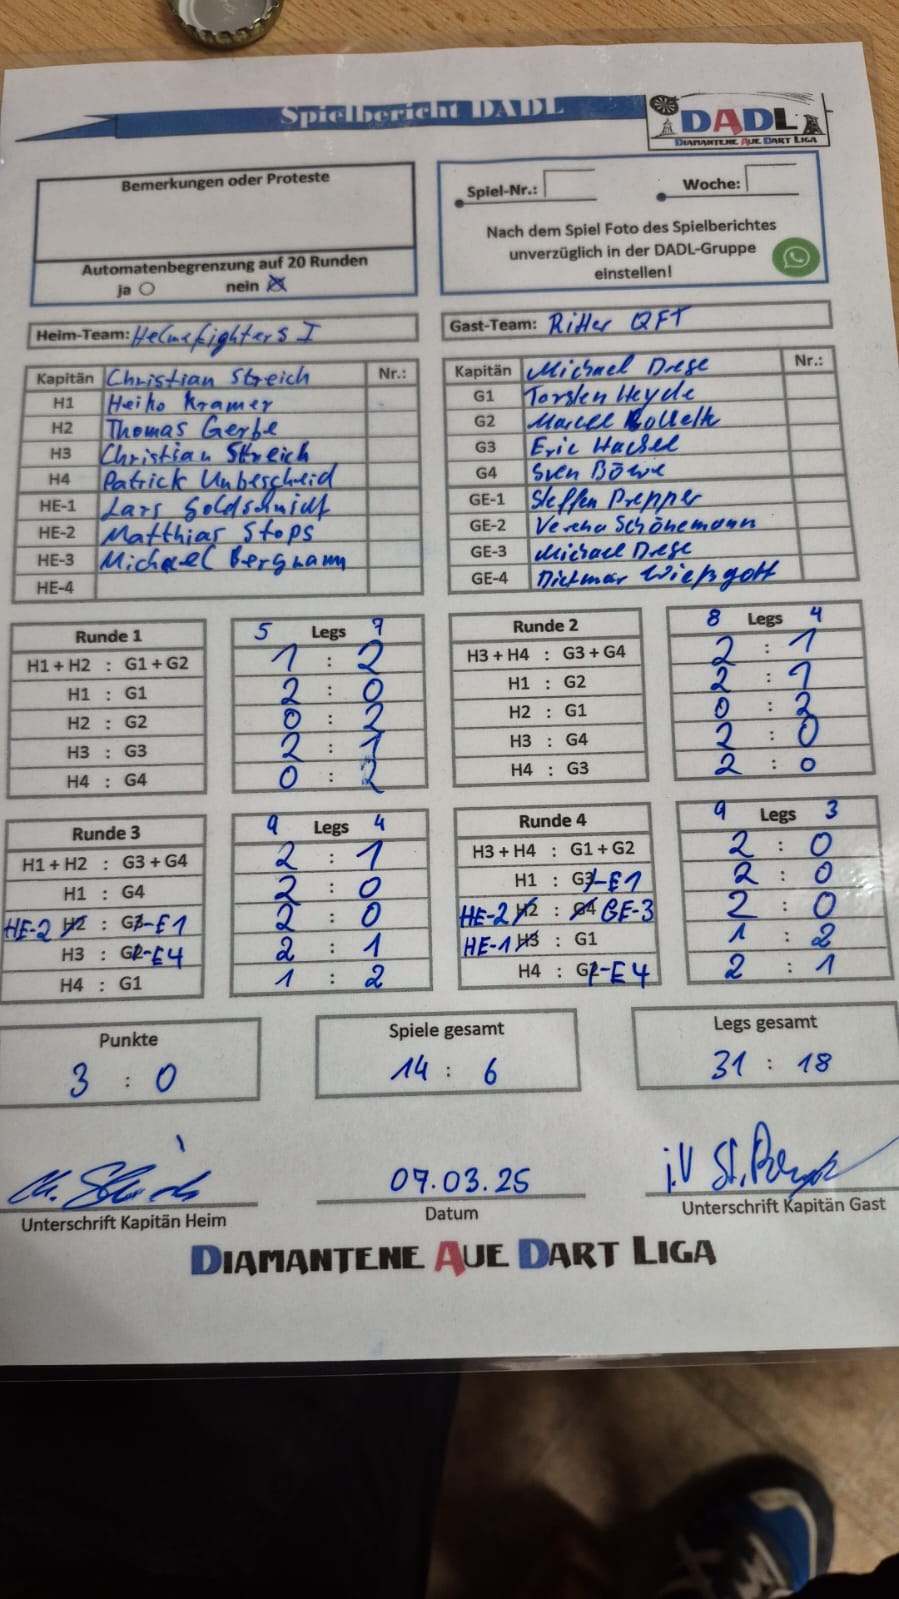 Spielbericht DADL
DADL
DIAMANTENE AUE DART LIGA
Bemerkungen oder Proteste
Automatenbegrenzung auf 20 Runden
ja nein
Spiel-Nr.: Woche:
Nach dem Spiel Foto des Spielberichtes
unverzüglich in der DADL-Gruppe
einstellen!
Heim-Team: Helmefighters I
Kapitän Christian Streich Nr.:
H1 Heiko Kramer
H2 Thomas Gerbe
H3 Christian Streich
H4 Patrick Unbescheid
HE-1 Lars Goldschmidt
HE-2 Matthias Stops
HE-3 Michael Bergmann
HE-4
Gast-Team: Ritter QFT
Kapitän Michael Drese Nr.:
G1 Torsten Heyde
G2 Marcel
G3 Eric
G4 Sven Böwe
GE-1 Steffen Prepper
GE-2 Verena Schönemann
GE-3 Michael Drese
GE-4 Dietmar Wießgott
Runde 1 5 Legs 7
H1 + H2 : G1 + G2 1 : 2
H1 : G1 2 : 0
H2 : G2 0 : 2
H3 : G3 2 : 1
H4 : G4 0 : 2
Runde 2 8 Legs 4
H3 + H4 : G3 + G4 2 : 1
H1 : G2 2 : 1
H2 : G1 0 : 2
H3 : G4 2 : 0
H4 : G3 2 : 0
Runde 3 9 Legs 4
H1 + H2 : G3 + G4 2 : 1
H1 : G4 2 : 0
HE-2 H2 : G3-E1 2 : 0
H3 : G2-E4 2 : 1
H4 : G1 1 : 2
Runde 4 9 Legs 3
H3 + H4 : G1 + G2 2 : 0
H1 : G3-E1 2 : 0
HE-2 H2 : G4 GE-3 2 : 0
HE-1 H3 : G1 1 : 2
H4 : G2-E4 2 : 1
Punkte
3 : 0
Spiele gesamt
14 : 6
Legs gesamt
31 : 18
Ch. Streich
Unterschrift Kapitän Heim
07.03.25
Datum
i.V St.
Unterschrift Kapitän Gast
DIAMANTENE AUE DART LIGA